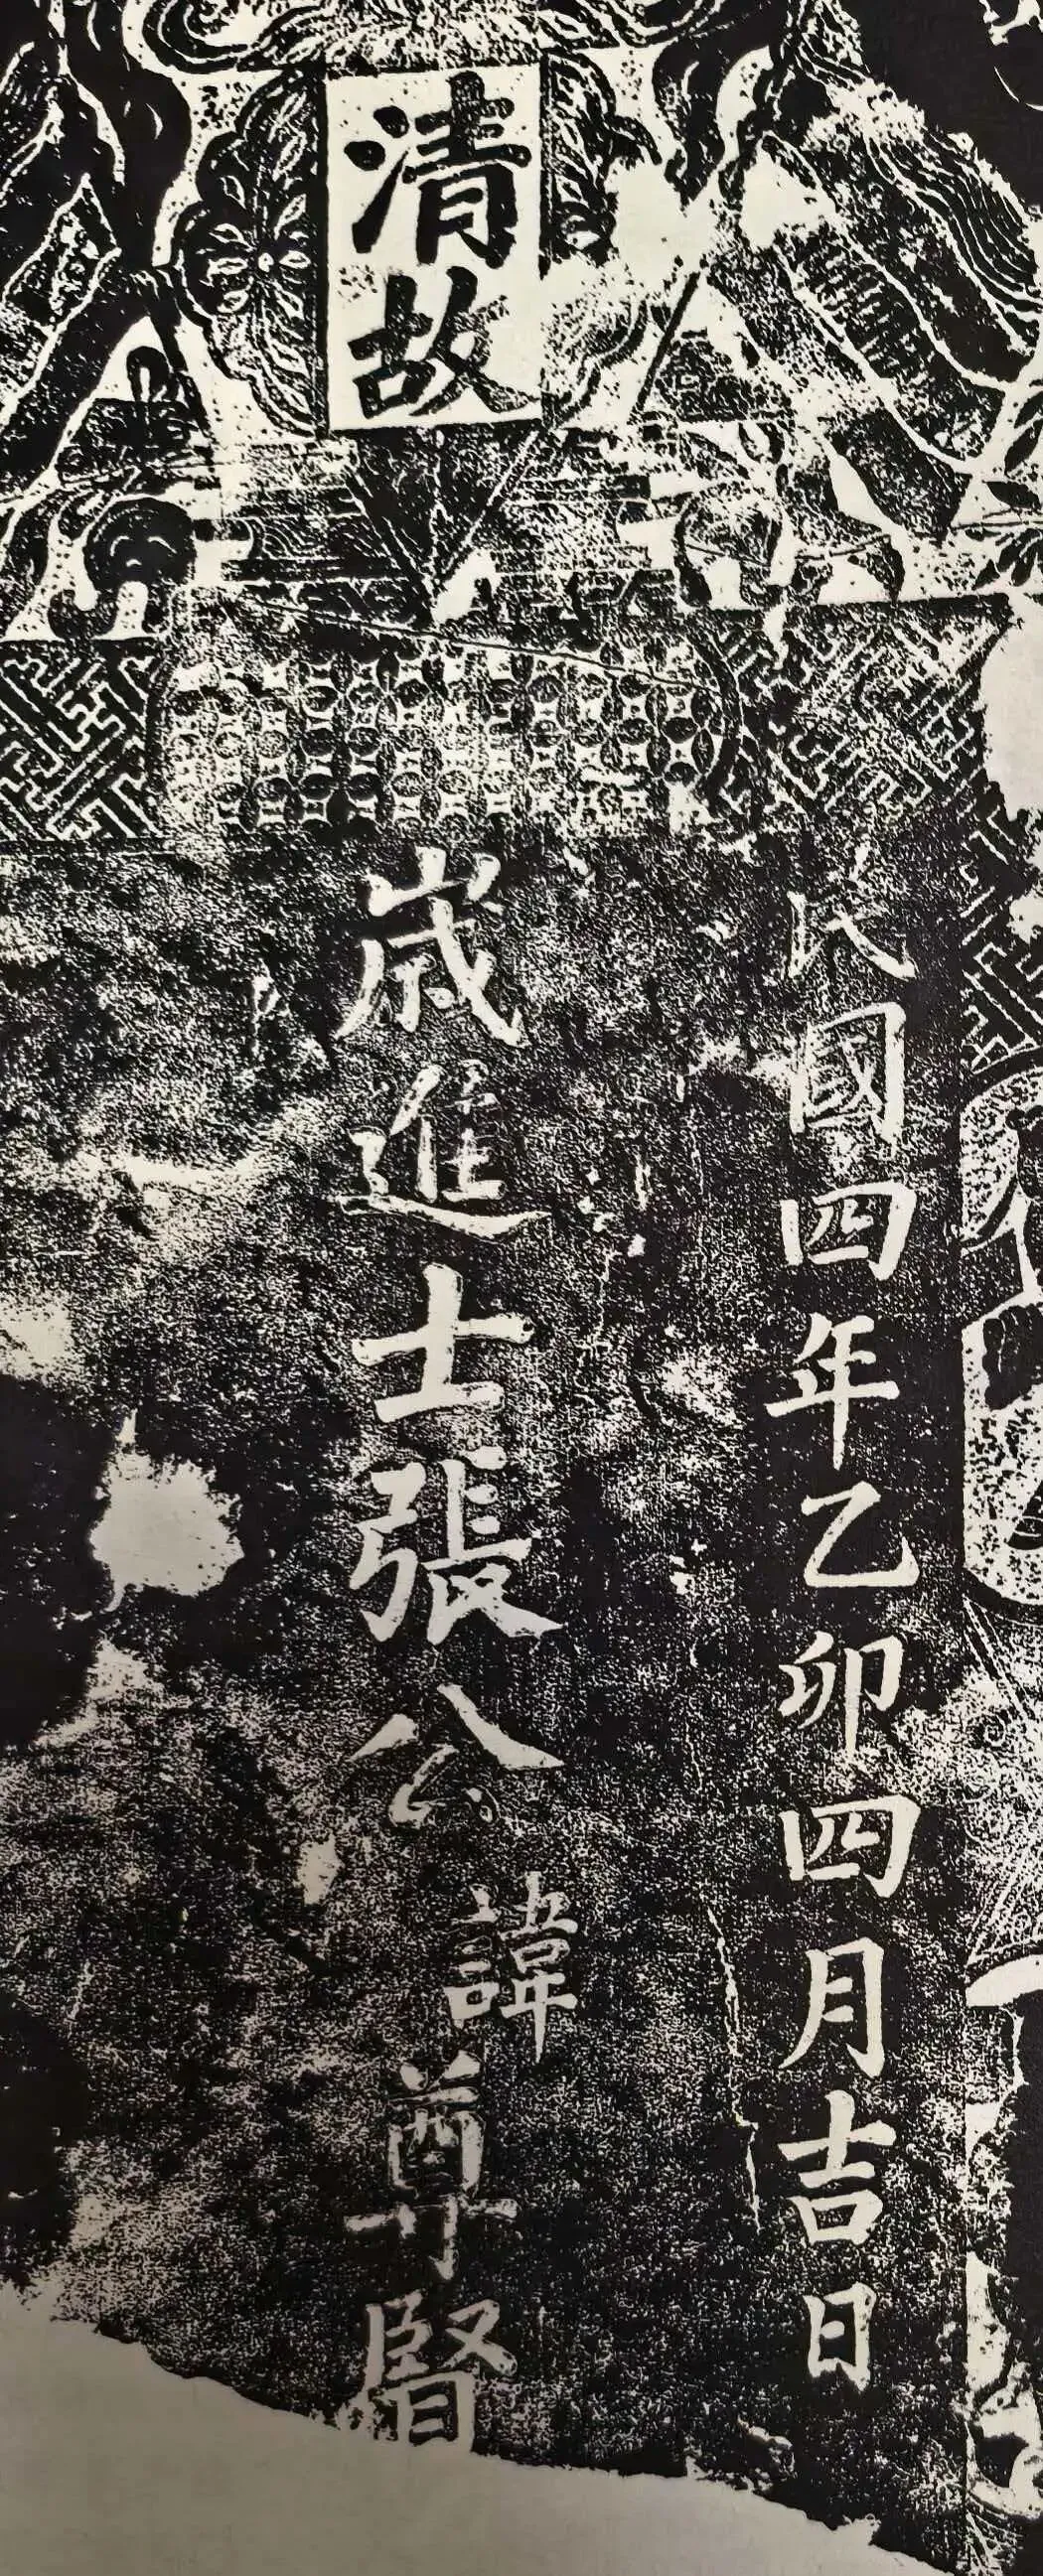 清故
民國四年乙卯四月吉日
歲進士張公諱尊賢